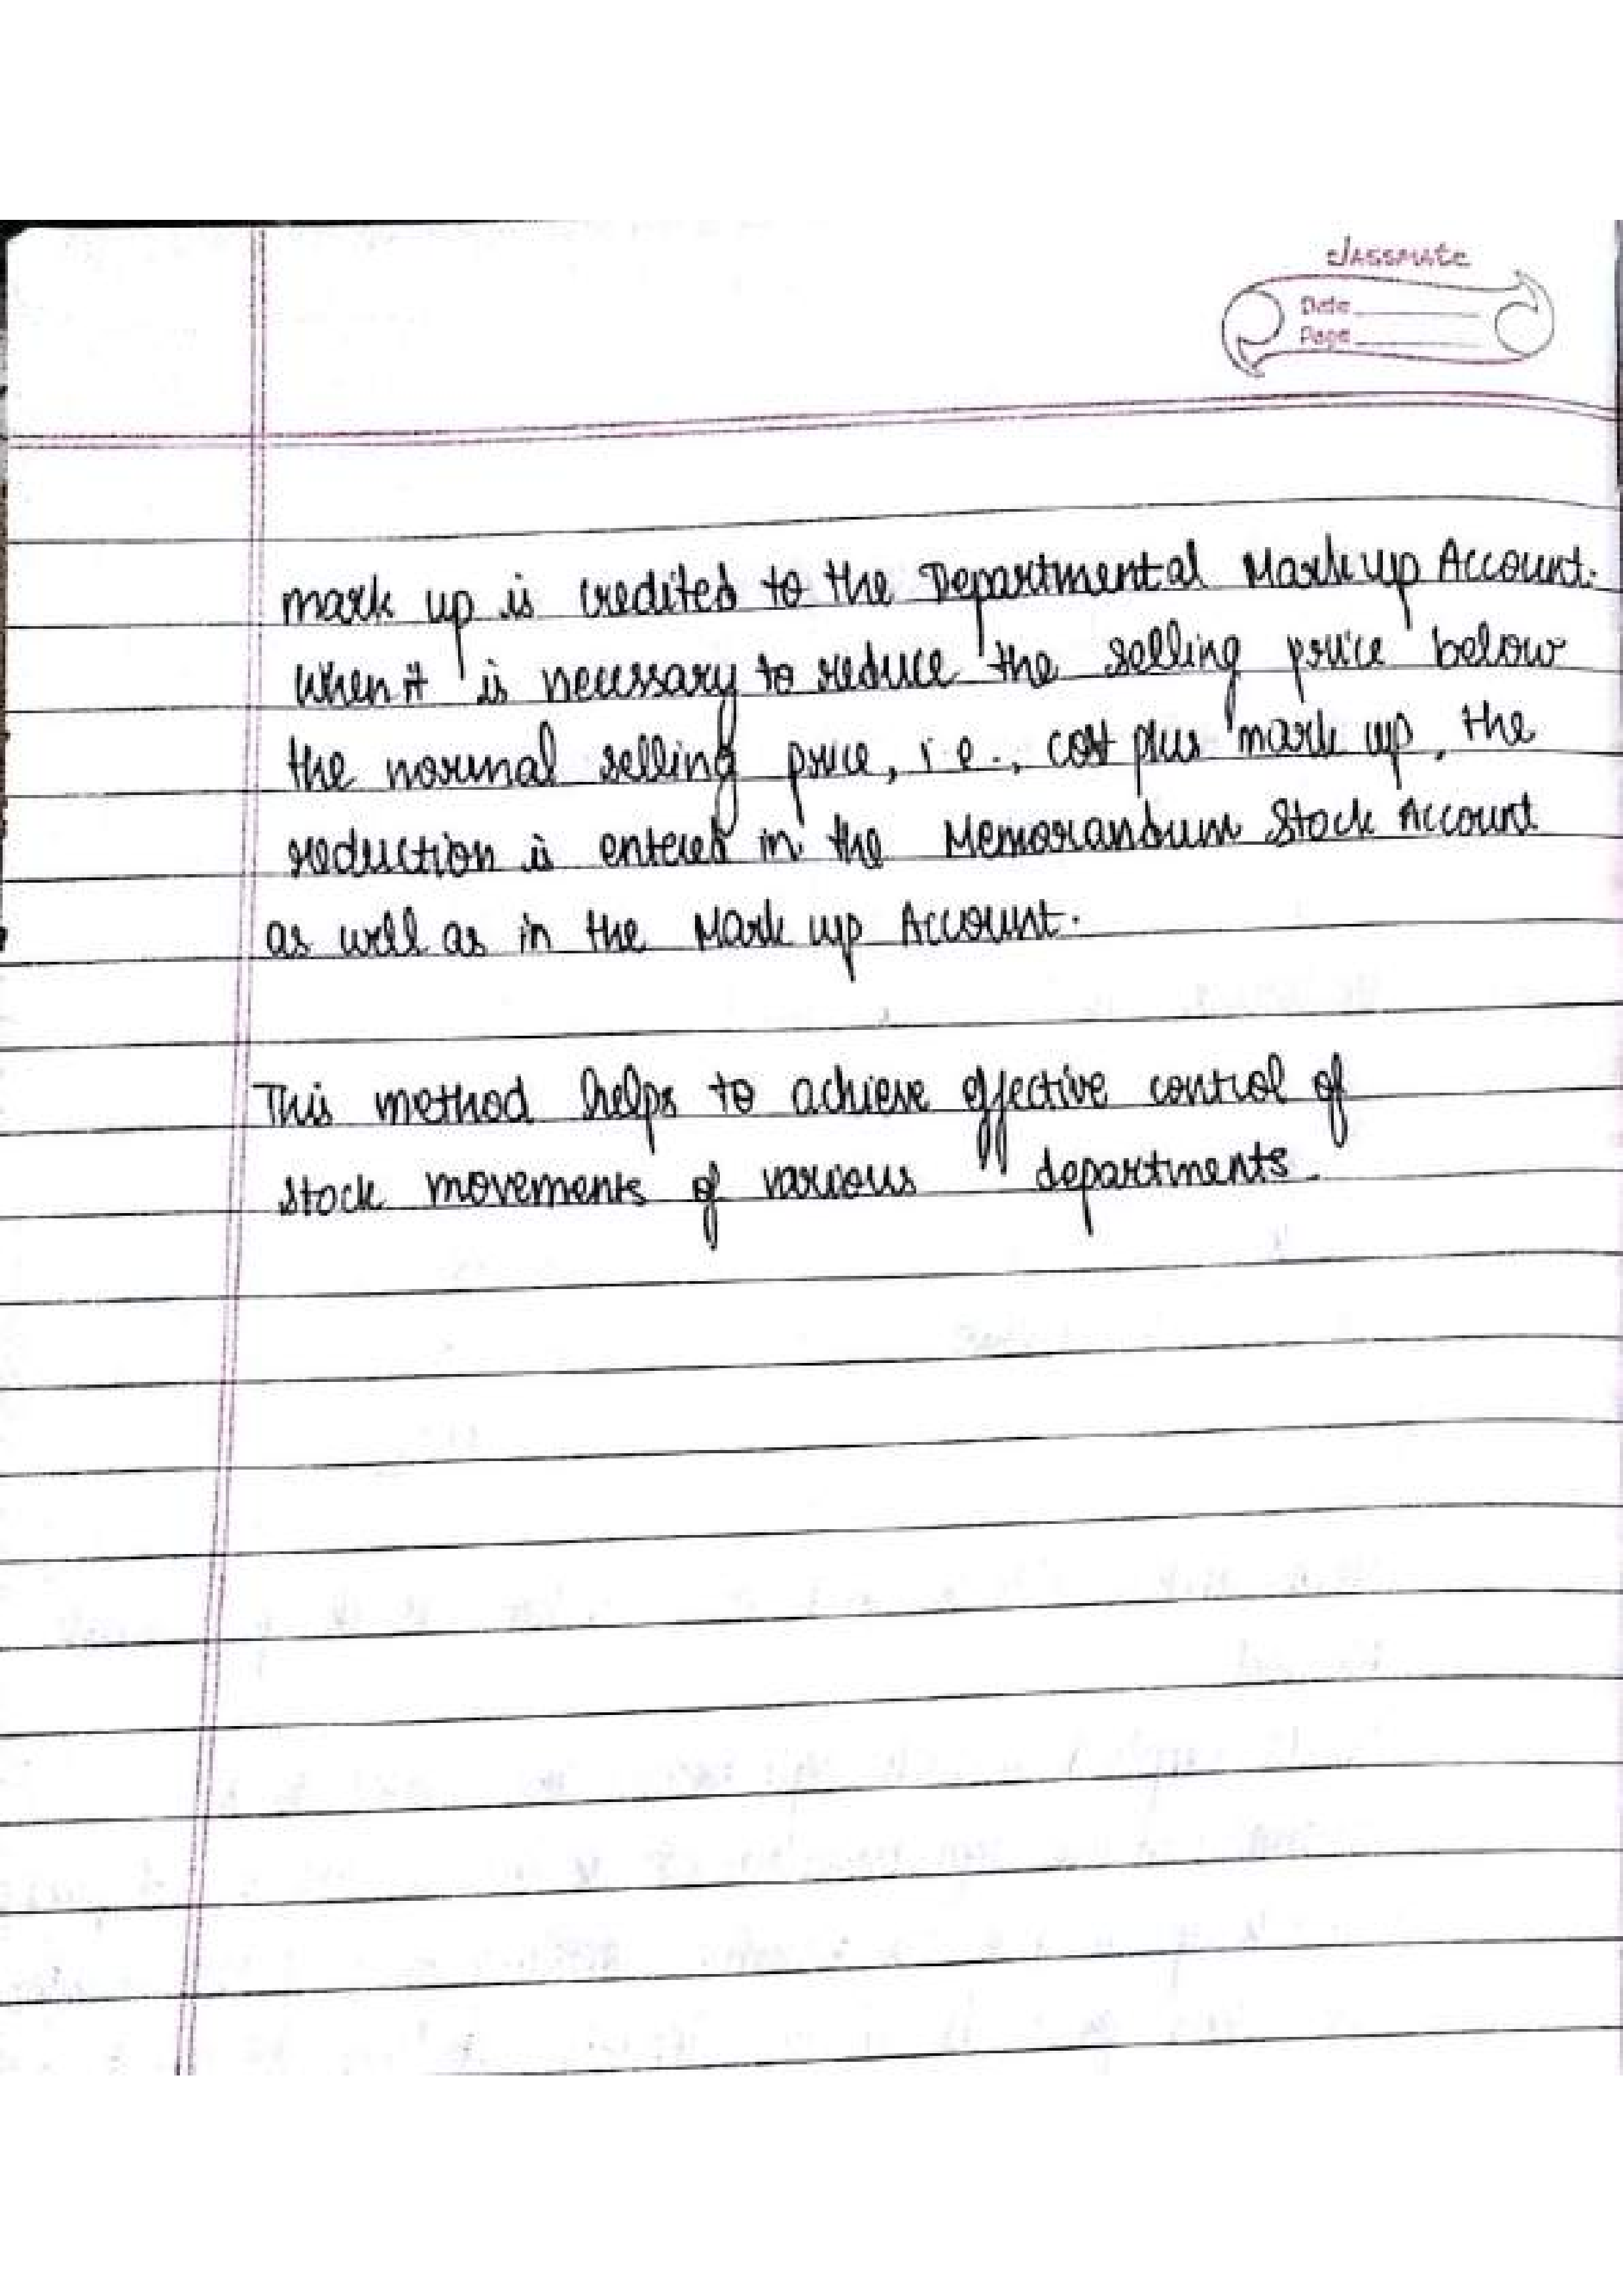 classmate
Date
Page
mark up is credited to the Departmental Mark up Account.
When it is necessary to reduce the selling price below
the normal selling price, i.e., cost plus mark up, the
reduction is entered in the Memorandum Stock Account
as well as in the Mark up Account.
This method helps to achieve effective control of
stock movements of various departments.